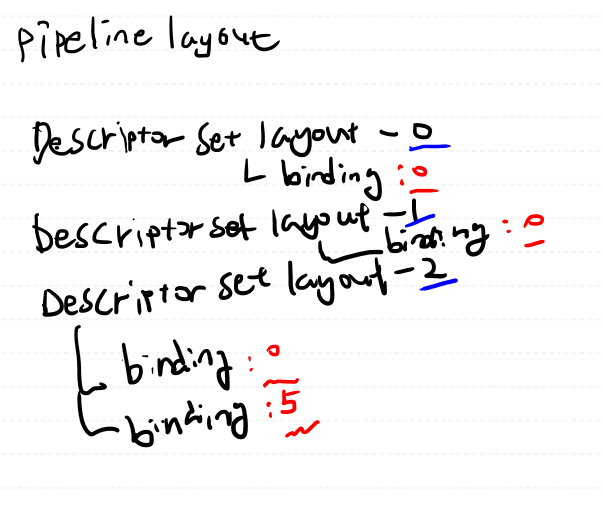 pipeline layout
Descriptor set layout - 0
binding : 0
Descriptor set layout - 1
binding : 0
Descriptor set layout - 2
binding : 0
binding : 5